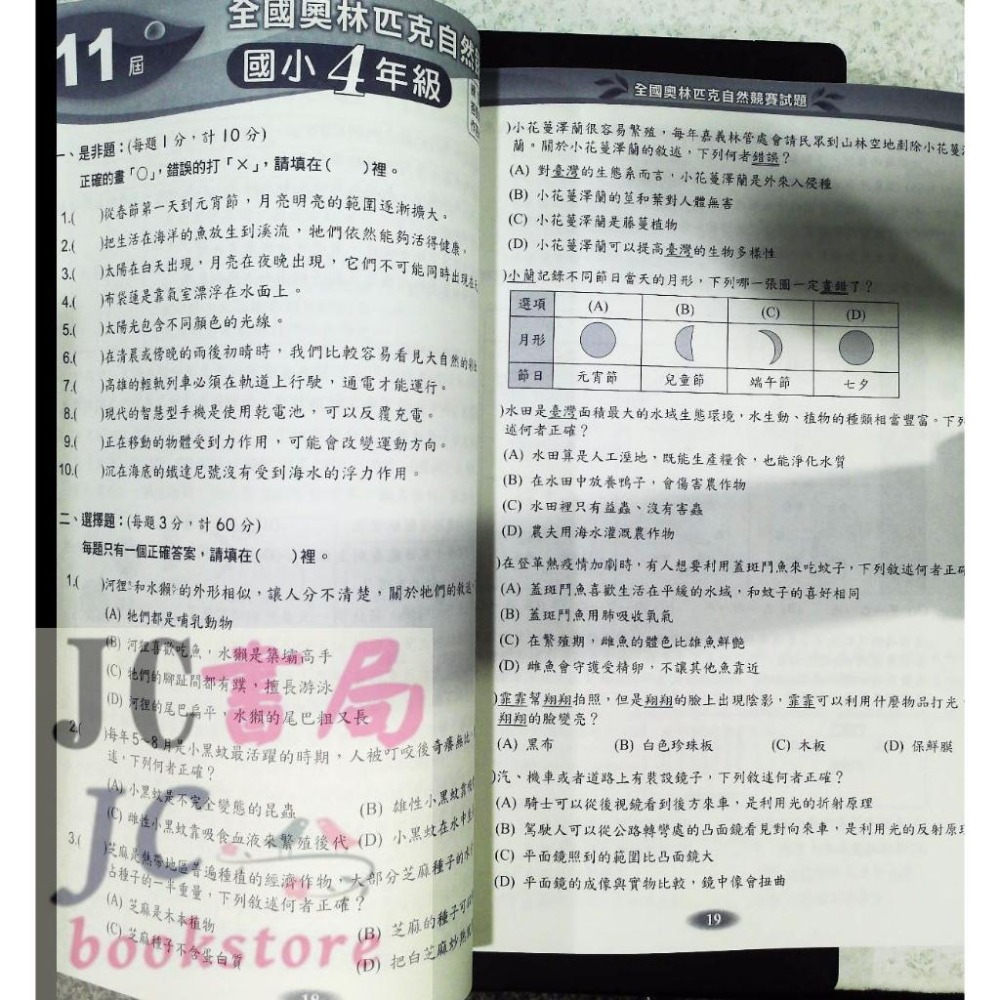 11屆
全國奧林匹克自然
國小4年級
一、是非題:(每題1分,計10分)
正確的畫「○」,錯誤的打「×」,請填在( )裡。
1.( )從春節第一天到元宵節,月亮明亮的範圍逐漸擴大。
2.( )把生活在海洋的魚放生到溪流,牠們依然能夠活得健康。
3.( )太陽在白天出現,月亮在夜晚出現,它們不可能同時出現在
4.( )布袋蓮是靠氣室漂浮在水面上。
5.( )太陽光包含不同顏色的光線。
6.( )在清晨或傍晚的雨後初晴時,我們比較容易看見大自然的
7.( )高雄的輕軌列車必須在軌道上行駛,通電才能運行。
8.( )現代的智慧型手機是使用乾電池,可以反覆充電。
9.( )正在移動的物體受到力作用,可能會改變運動方向。
10.( )沉在海底的鐵達尼號沒有受到海水的浮力作用。
二、選擇題:(每題3分,計60分)
每題只有一個正確答案,請填在( )裡。
1.( )河狸和水獺的外形相似,讓人分不清楚,關於牠們的敘述,
(A) 牠們都是哺乳動物
(B) 河狸喜歡吃魚,水獺是築壩高手
(C) 牠們的腳趾間都有蹼,擅長游泳
(D) 河狸的尾巴扁平,水獺的尾巴粗又長
2.( )每年5~8月是小黑蚊最活躍的時期,人被叮咬後奇癢無比,
述,下列何者正確?
(A) 小黑蚊是不完全變態的昆蟲 (B) 雄性小黑蚊靠吸
(C) 雌性小黑蚊靠吸食血液來繁殖後代 (D) 小黑蚊在水中
3.( )芝麻是熱帶地區普遍種植的經濟作物,大部分芝麻種子的
占種子的一半重量,下列敘述何者正確?
(A) 芝麻是木本植物 (B) 芝麻的種子可
(C) 芝麻種子不含蛋白質 (D) 把白芝麻炒熟
18
全國奧林匹克自然競賽試題
)小花蔓澤蘭很容易繁殖,每年嘉義林管處會請民眾到山林空地剷除小花蔓澤
蘭。關於小花蔓澤蘭的敘述,下列何者錯誤?
(A) 對臺灣的生態系而言,小花蔓澤蘭是外來入侵種
(B) 小花蔓澤蘭的莖和葉對人體無害
(C) 小花蔓澤蘭是藤蔓植物
(D) 小花蔓澤蘭可以提高臺灣的生物多樣性
)小蘭記錄不同節日當天的月形,下列哪一張圖一定畫錯了?
選項 (A) (B) (C) (D)
月形
節日 元宵節 兒童節 端午節 七夕
)水田是臺灣面積最大的水域生態環境,水生動、植物的種類相當豐富。下列
述何者正確?
(A) 水田算是人工溼地,既能生產糧食,也能淨化水質
(B) 在水田中放養鴨子,會傷害農作物
(C) 水田裡只有益蟲、沒有害蟲
(D) 農夫用海水灌溉農作物
)在登革熱疫情加劇時,有人想要利用蓋斑鬥魚來吃蚊子,下列敘述何者正確
(A) 蓋斑鬥魚喜歡生活在平緩的水域,和蚊子的喜好相同
(B) 蓋斑鬥魚用肺吸收氧氣
(C) 在繁殖期,雌魚的體色比雄魚鮮艷
(D) 雌魚會守護受精卵,不讓其他魚靠近
)霏霏幫翔翔拍照,但是翔翔的臉上出現陰影,霏霏可以利用什麼物品打光,
翔翔的臉變亮?
(A) 黑布 (B) 白色珍珠板 (C) 木板 (D) 保鮮膜
)汽、機車或者道路上有裝設鏡子,下列敘述何者正確?
(A) 騎士可以從後視鏡看到後方來車,是利用光的折射原理
(B) 駕駛人可以從公路轉彎處的凸面鏡看見對向來車,是利用光的反射原理
(C) 平面鏡照到的範圍比凸面鏡大
(D) 平面鏡的成像與實物比較,鏡中像會扭曲
19
JC書局
JC
bookstore